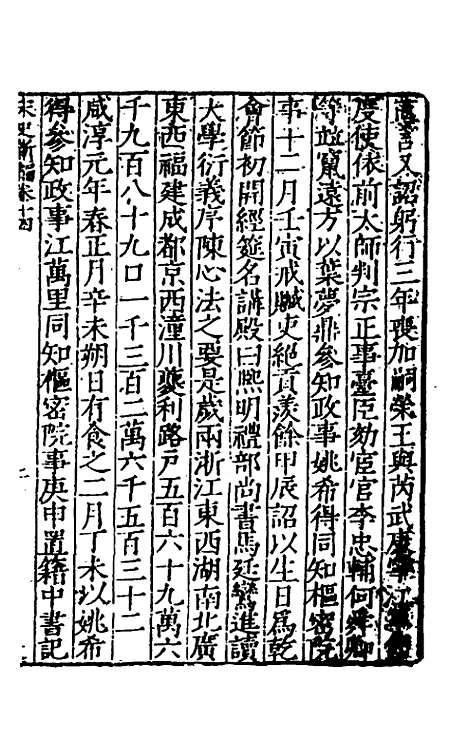 言又詔躬行三年喪加嗣榮王與芮武康寧江
度使依前太師判宗正事臺臣劾宦官李忠輔何舜卿
等並竄遠方以葉夢鼎參知政事姚希得同知樞密院
事十二月壬寅戒贓吏絕貢羨餘甲辰詔以生日爲乾
會節初開經筵名講殿曰熈明禮部尚書馬廷鸞進讀
大學衍義序陳心法之要是歲兩浙江東西湖南北廣
東西福建成都京西潼川夔利路戶五百六十九萬六
千九百八十九口一千三百二萬六千五百三十二
咸淳元年春正月辛未朔日有食之二月丁未以姚希
得參知政事江萬里同知樞密院事庚申置籍中書記
宋史新編卷十四